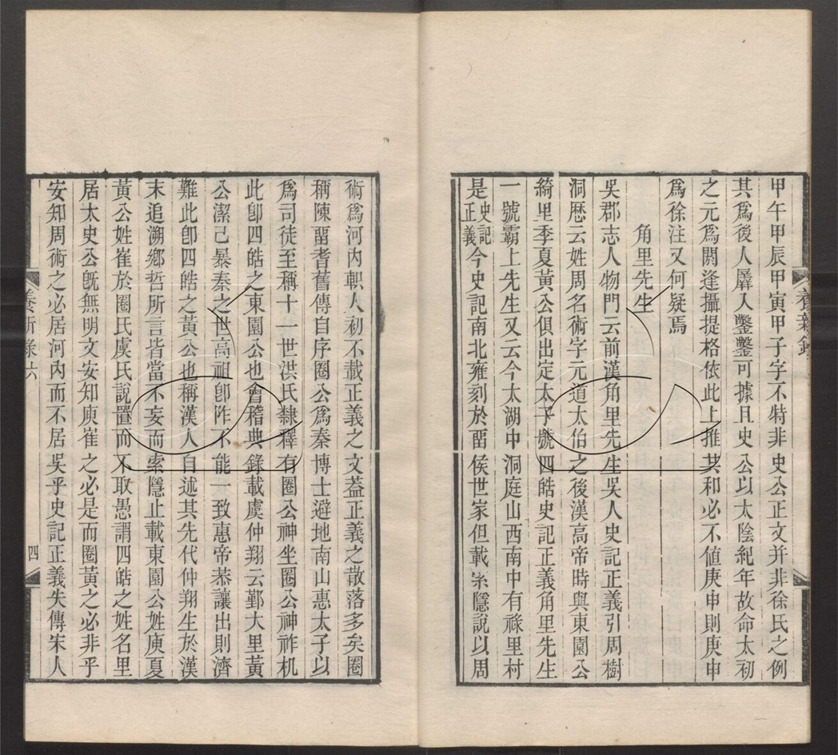 甲午甲辰甲寅甲子字不特非史公正文并非徐氏之例
其爲後人羼入鑿鑿可據且史公以太陰紀年故命太初
之元爲閼逢攝提格依此上推共和必不値庚申則庚申
爲徐注又何疑焉
角里先生
吳郡志人物門云前漢角里先生吳人史記正義引周樹
洞厯云姓周名術字元道太伯之後漢高帝時與東園公
綺里季夏黃公俱出定太子號四皓史記正義角里先生
一號霸上先生又云今太湖中洞庭山西南中有祿里村
是史記正義今史記南北雍刻於畱侯世家但載索隱說以周
術爲河內軹人初不載正義之文葢正義之散落多矣圈
稱陳畱耆舊傳自序圈公爲秦博士避地南山惠太子以
爲司徒至稱十一世洪氏隸釋有圈公神坐圈公神祚机
此卽四皓之東園公也會稽典錄載虞仲翔云鄞大里黃
公潔己暴秦之世高祖卽阼不能一致惠帝恭讓出則濟
難此卽四皓之黃公也稱漢人自述其先代仲翔生於漢
末追溯鄉哲所言皆當不妄而索隱止載東園公姓庾夏
黃公姓崔於圈氏虞氏說置而不取愚謂四皓之姓名里
居太史公旣無明文安知庾崔之必是而圈黃之必非乎
安知周術之必居河內而不居吳乎史記正義失傳宋人
養新錄六
四
養新錄